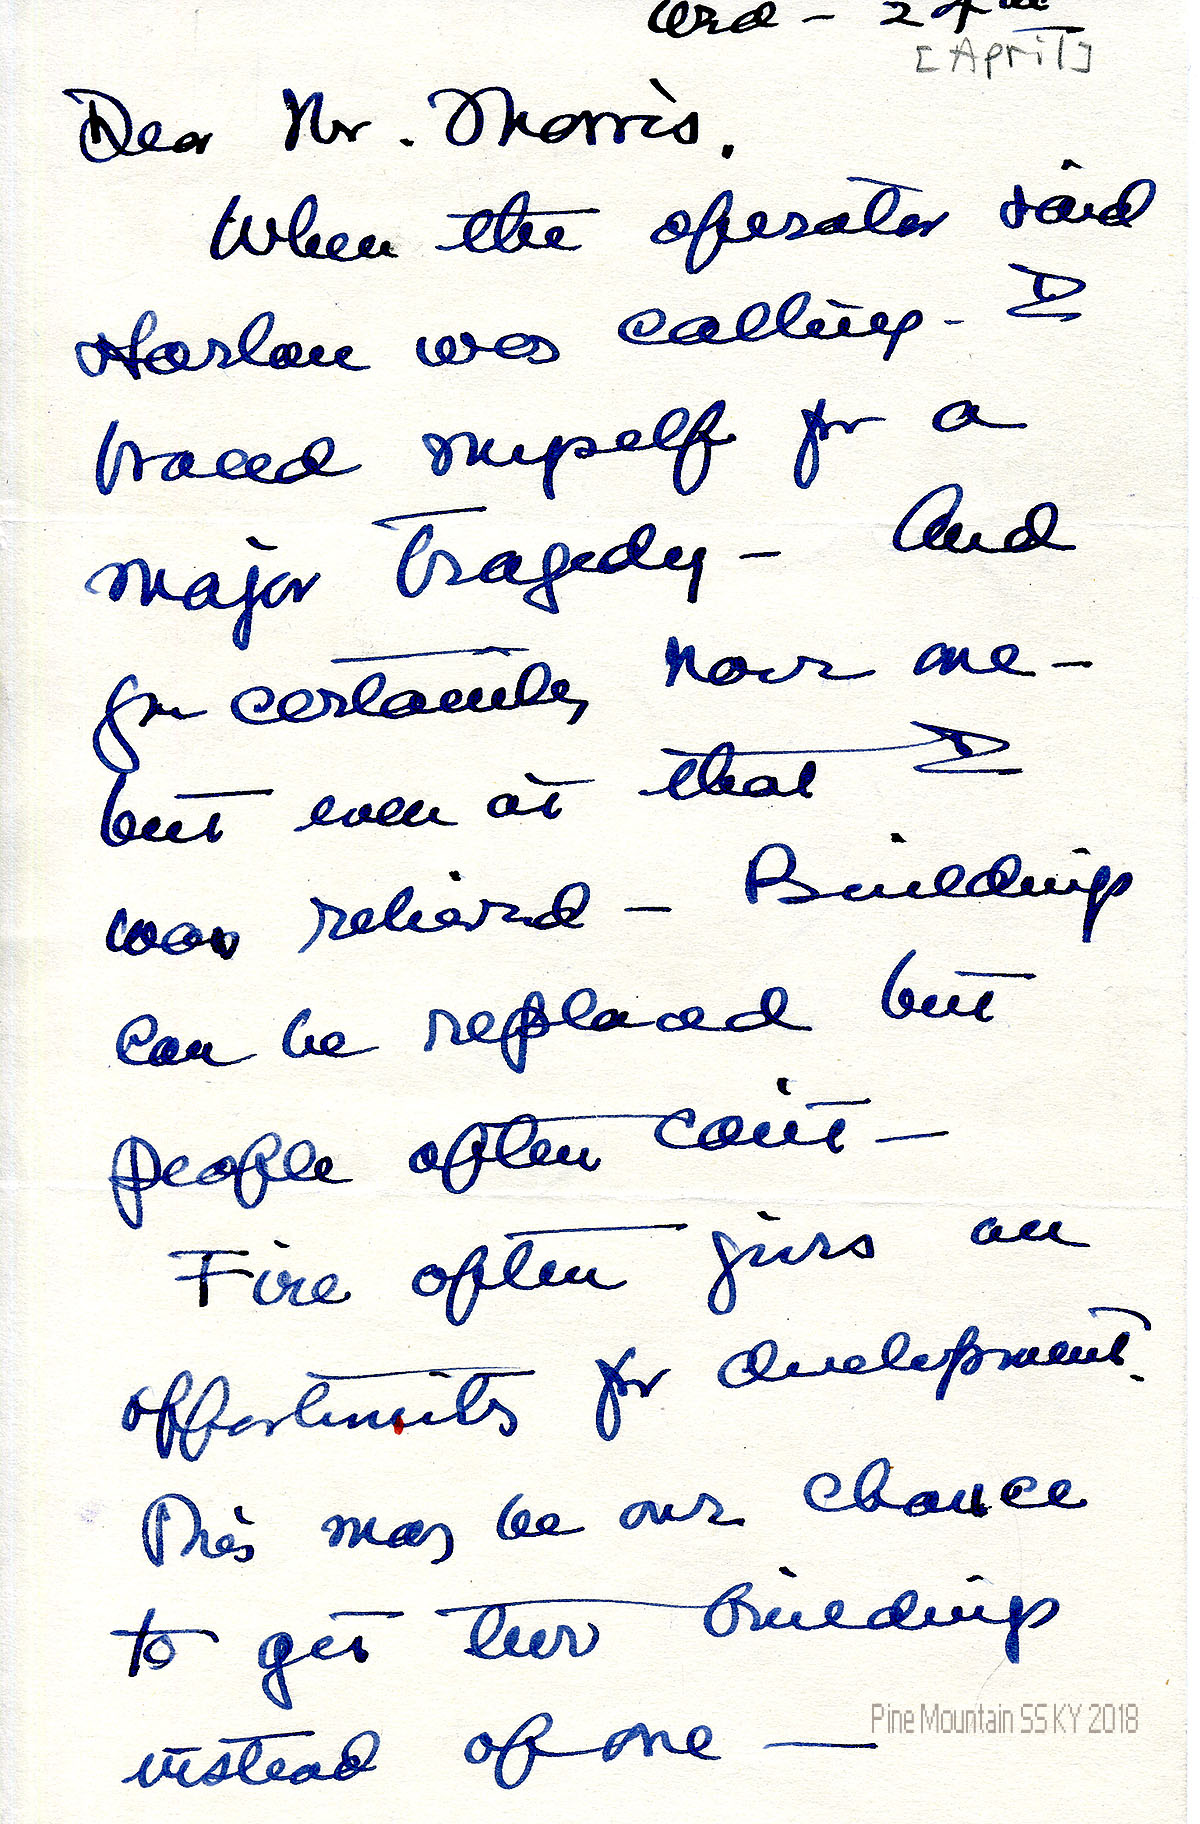 Wed - 24th
[April]
Dear Mr. Morris.
When the operator said
Harlan was calling - I
braced myself for a
major tragedy - And
you certainly have one -
but even at that I
was relieved - Buildings
can be replaced but
people often can't -
Fire often gives an
opportunity for development.
This may be our chance
to get two buildings
instead of one -
Pine Mountain SS KY 2018